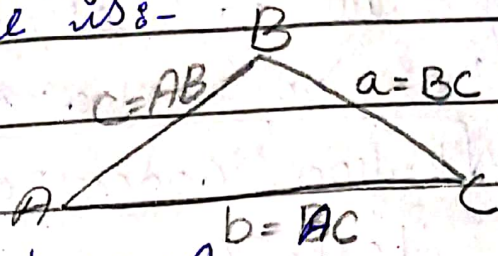 e is :-
B
c=AB
a=BC
A
C
b=AC